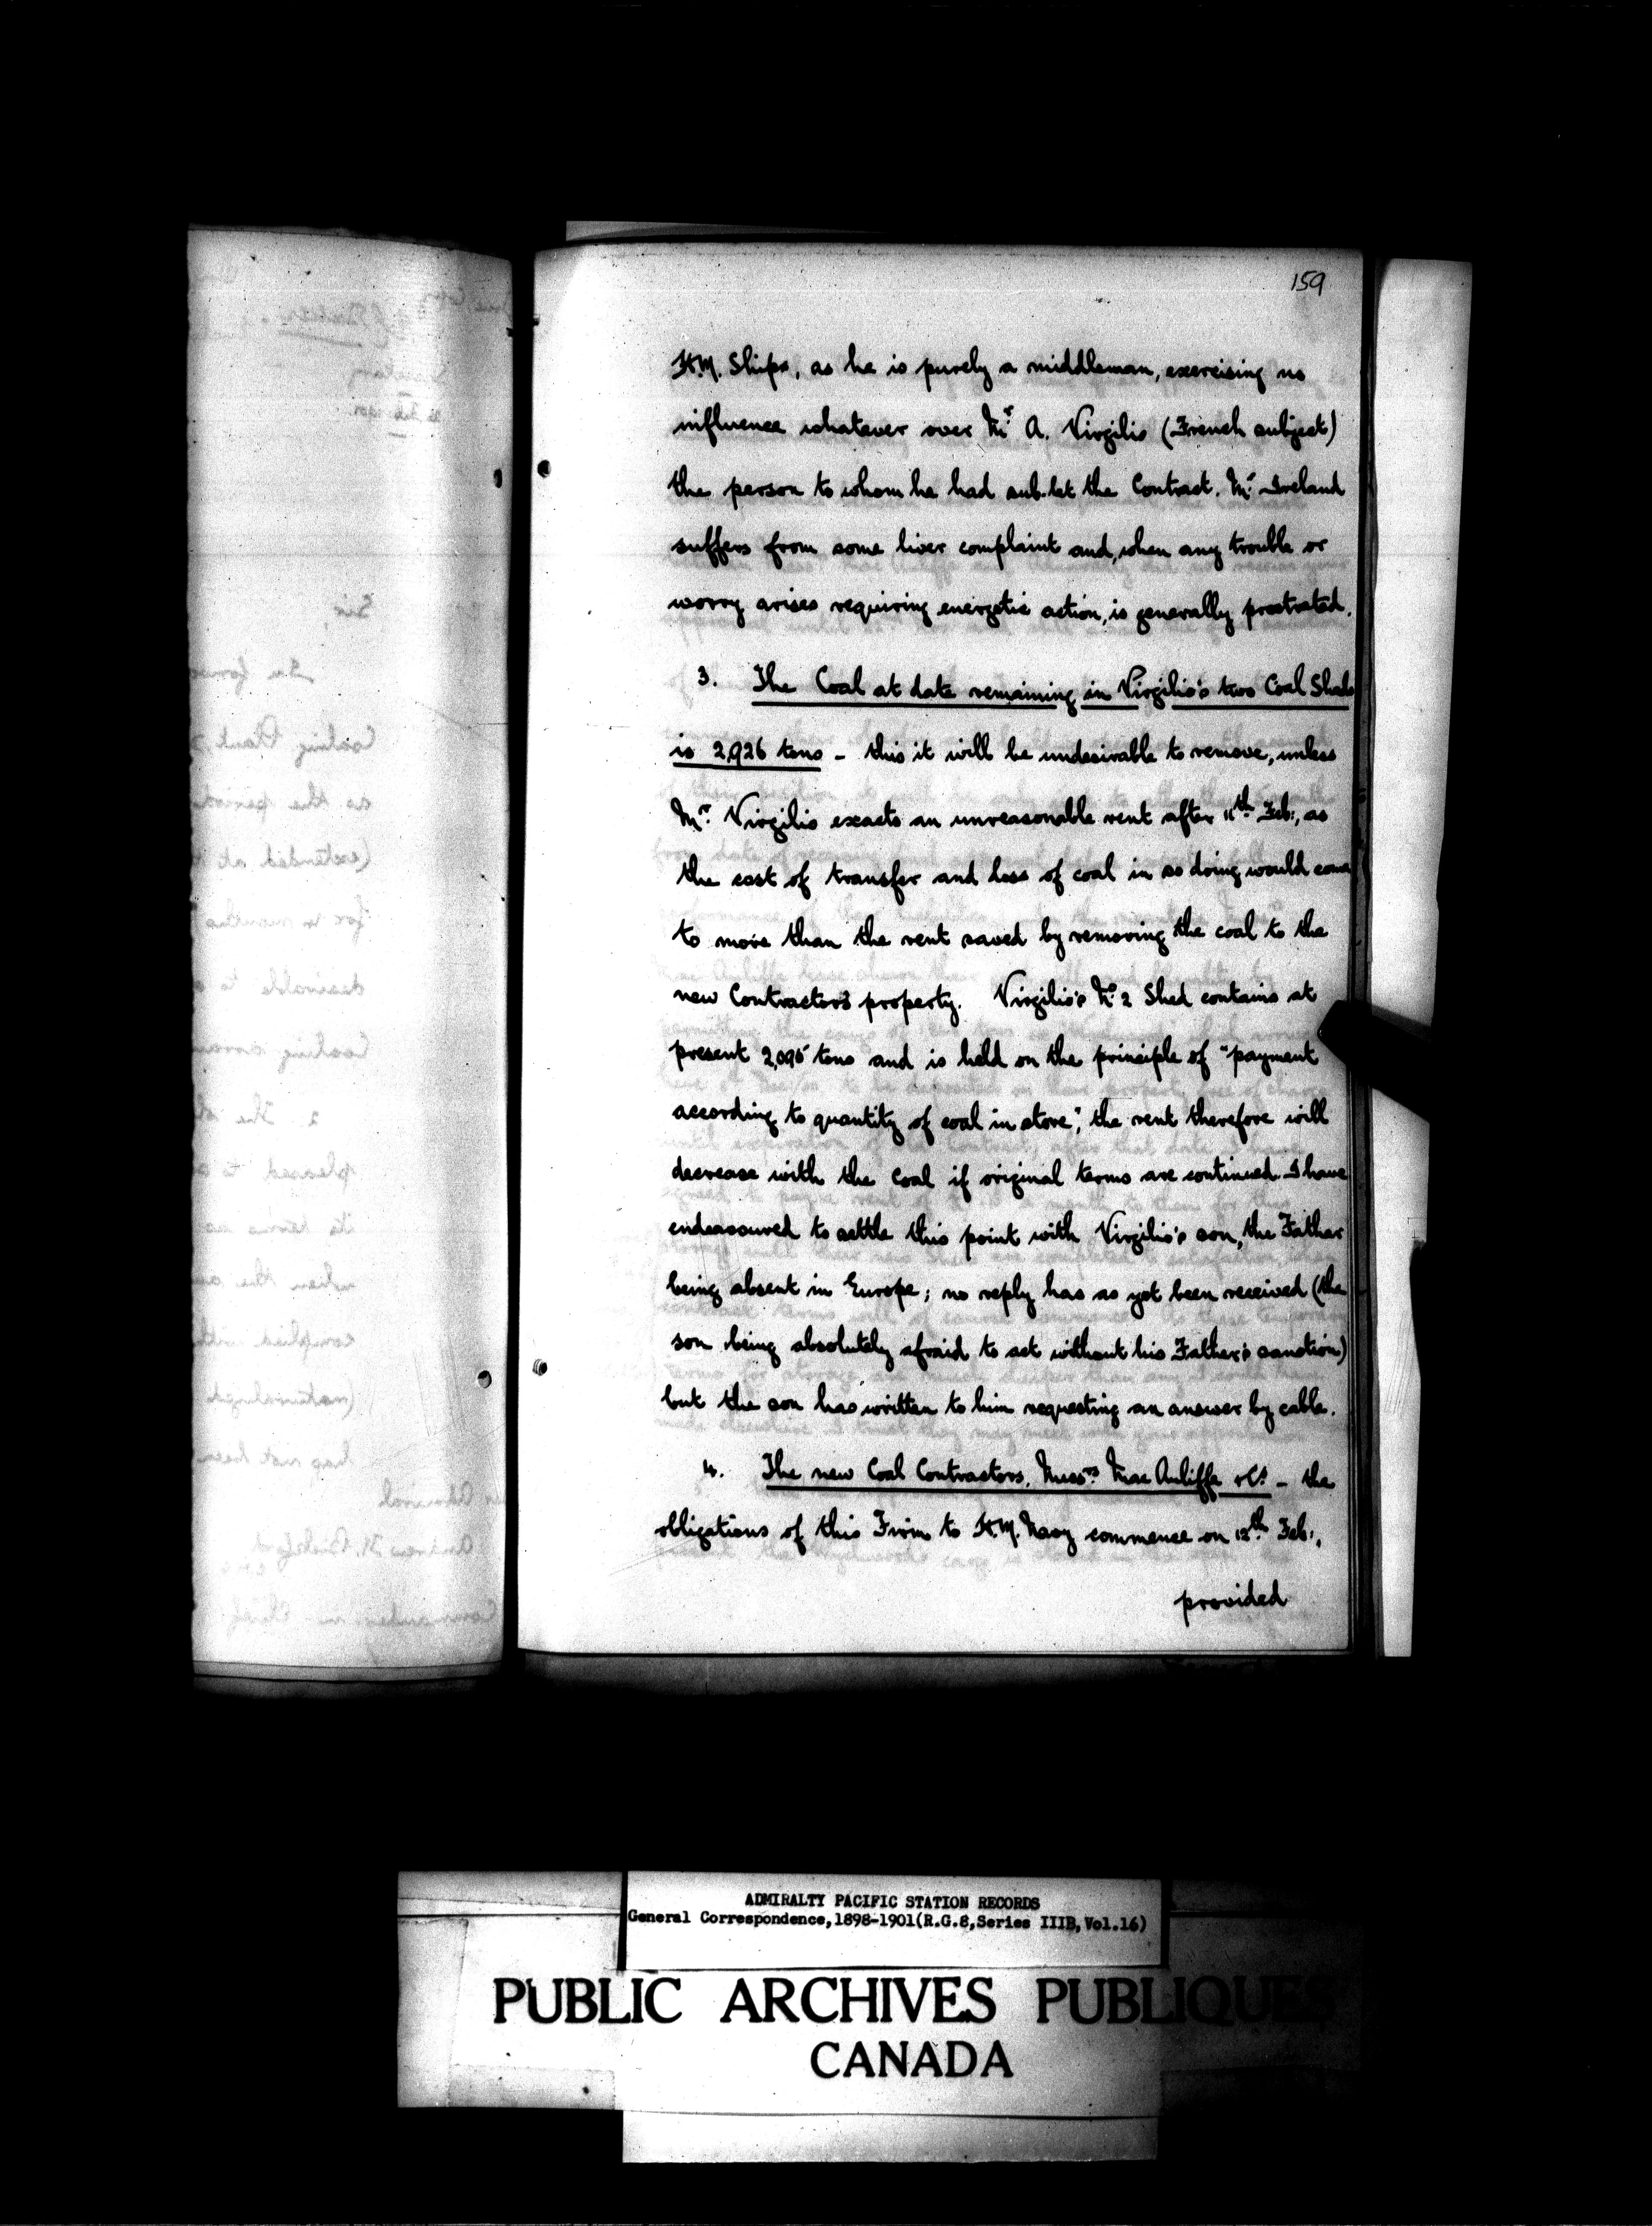 159
H.M. Ships, as he is purely a middleman, exercising no
influence whatever over Mr. A. Virgilio (French subject)
the person to whom he had sub-let the Contract. Mr. Ireland
suffers from some liver complaint and, when any trouble or
worry arises requiring energetic action, is generally prostrated.
3. The Coal at date remaining in Virgilio's two Coal Sheds
is 2,926 tons - this it will be undesirable to remove, unless
Mr. Virgilio exacts an unreasonable rent after 11th Feb:, as
the cost of transfer and loss of coal in so doing would come
to more than the rent saved by removing the coal to the
new Contractor's property. Virgilio's No. 2 Shed contains at
present 2,095 tons and is held on the principle of "payment
according to quantity of coal in store", the rent therefore will
decrease with the Coal if original terms are continued. I have
endeavoured to settle this point with Virgilio's son, the Father
being absent in Europe; no reply has as yet been received (the
son being absolutely afraid to act without his Father's sanction)
but the son has written to him requesting an answer by cable.
4. The new Coal Contractors, Messrs. Mac Auliffe & Co. - the
obligations of this Firm to H.M. Navy commence on 12th Feb:,
provided
ADMIRALTY PACIFIC STATION RECORDS
General Correspondence,1898-1901(R.G.8,Series IIIB,Vol.16)
PUBLIC ARCHIVES PUBLIQUES
CANADA